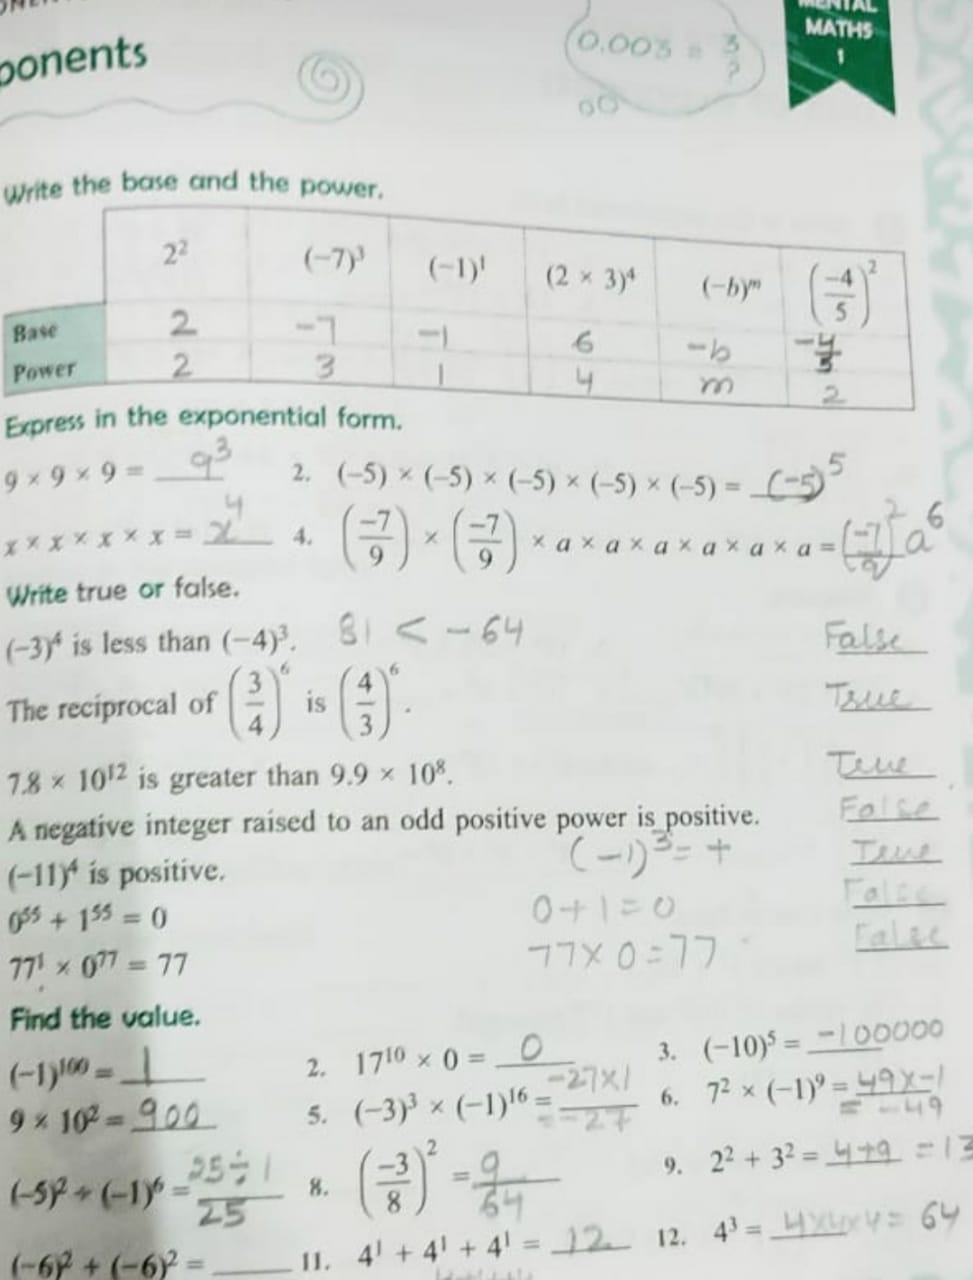 MENTAL
MATHS
1
ponents
0.003 = 3/?
Write the base and the power.
2² (−7)³ (−1)¹ (2 × 3)⁴ (−b)ᵐ (−4/5)²
Base 2 −7 −1 6 −b
Power 2 3 1 4 m 2
Express in the exponential form.
9 × 9 × 9 = 9³ 2. (−5) × (−5) × (−5) × (−5) × (−5) = (−5)⁵
x × x × x × x = x⁴ 4. (−7/9) × (−7/9) × a × a × a × a × a × a = (−7/9)² a⁶
Write true or false.
(−3)⁴ is less than (−4)³. 81 < −64 False
The reciprocal of (3/4)⁶ is (4/3)⁶. True
7.8 × 10¹² is greater than 9.9 × 10⁸. True
A negative integer raised to an odd positive power is positive. False
(−1)³ = +
(−11)⁴ is positive. True
0⁵⁵ + 1⁵⁵ = 0 0+1=0 False
77¹ × 0⁷⁷ = 77 77×0=77 False
Find the value.
(−1)¹⁰⁰ = 1 2. 17¹⁰ × 0 = 0 3. (−10)⁵ = −100000
9 × 10² = 900 5. (−3)³ × (−1)¹⁶ = −27×1 = −27 6. 7² × (−1)⁹ = 49×−1 = −49
(−5)² ÷ (−1)⁶ = 25÷1 25 8. (−3/8)² = 9/64 9. 2² + 3² = 4+9 = 13
(−6)² + (−6)² = 11. 4¹ + 4¹ + 4¹ = 12 12. 4³ = 4×4×4 = 64